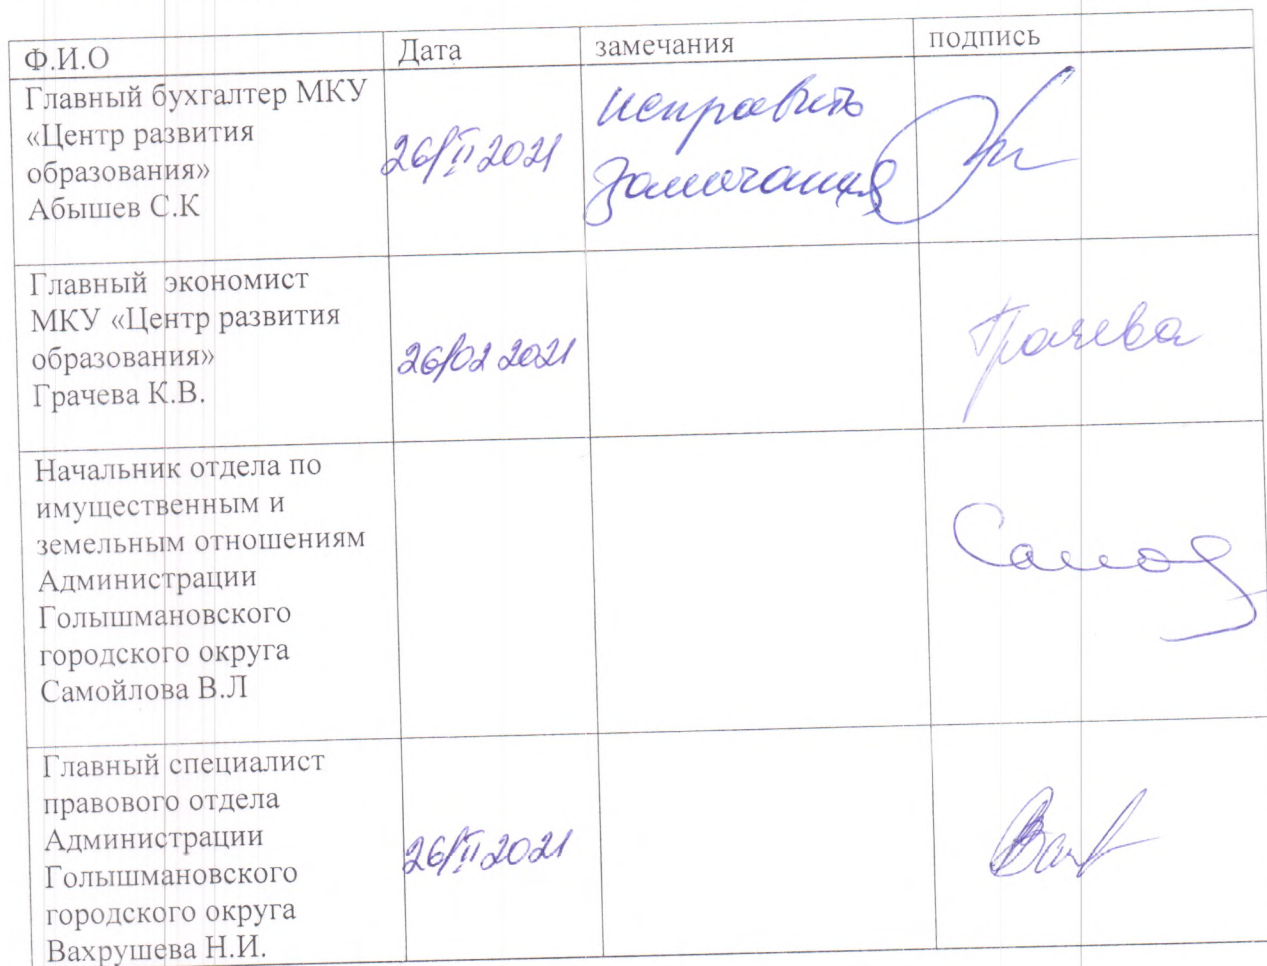 Ф.И.О Дата замечания подпись
Главный бухгалтер МКУ
«Центр развития
образования»
Абышев С.К
26/II 2021
исправить
замечания
Главный экономист
МКУ «Центр развития
образования»
Грачева К.В.
26/02 2021
Грачева
Начальник отдела по
имущественным и
земельным отношениям
Администрации
Голышмановского
городского округа
Самойлова В.Л
Самой
Главный специалист
правового отдела
Администрации
Голышмановского
городского округа
Вахрушева Н.И.
26/II 2021